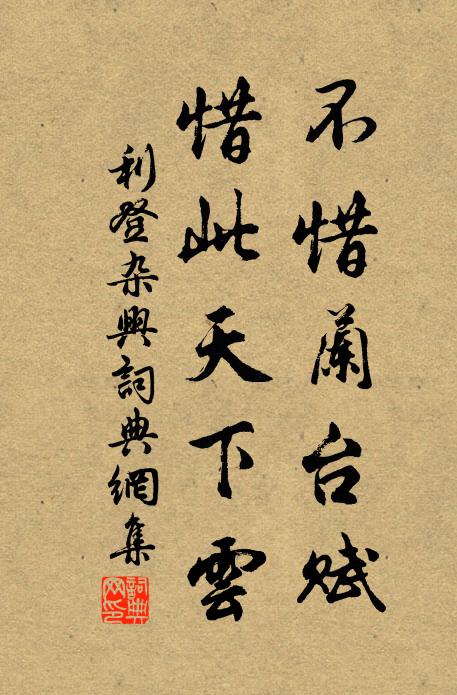 不惜蘭台賦
惜此天下雲
利登杂興詞典網集
詞典网印